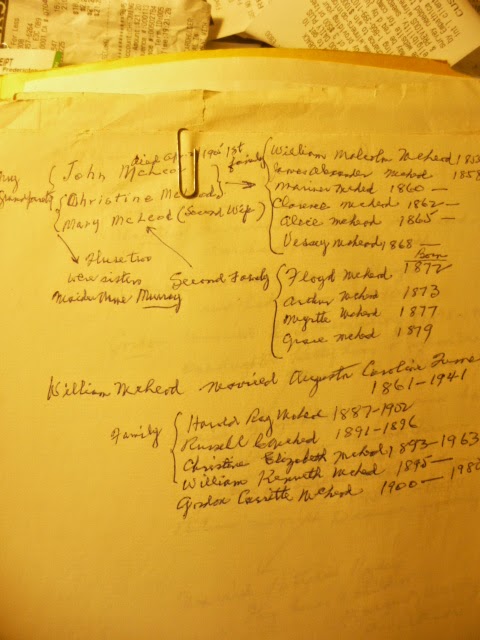 my
Grandparents
John McLeod
died Apr 1905
1st family
Christine McLeod
Mary McLeod (Second Wife)
These two
were sisters
Maiden Name Murray
William Malcolm McLeod
James Alexander McLeod 1858
Mariner McLeod 1860 —
Clarence McLeod 1862 —
Alice McLeod 1865 —
Vessey McLeod 1868 —
Second Family
Born
Floyd McLeod 1872
Arthur McLeod 1873
Myrtle McLeod 1877
Grace McLeod 1879
William McLeod married Augusta Caroline
1861-1941
Family
Harold Ray McLeod 1887-1902
Russell McLeod 1891-1896
Christine Elizabeth McLeod 1893-1963
William Kenneth McLeod 1895 —
Gordon Cassette McLeod 1900 —